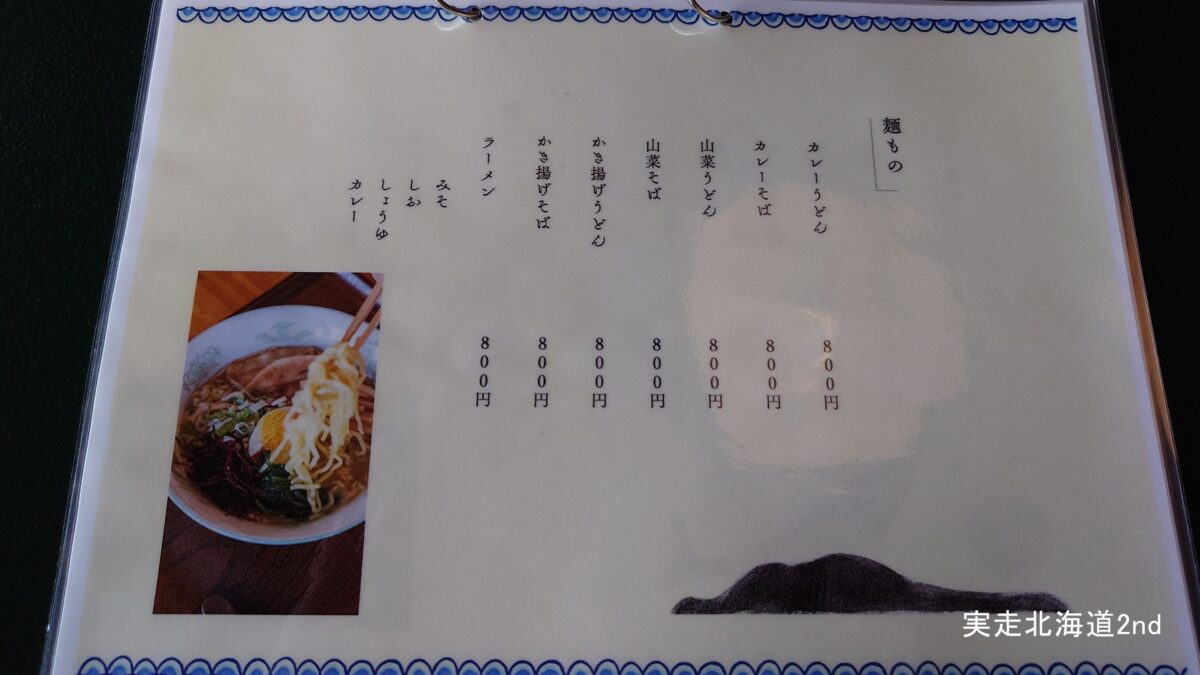 麺もの
カレーうどん 800円
カレーそば 800円
山菜うどん 800円
山菜そば 800円
かき揚げうどん 800円
かき揚げそば 800円
ラーメン 800円
みそ
しお
しょうゆ
カレー
実走北海道2nd